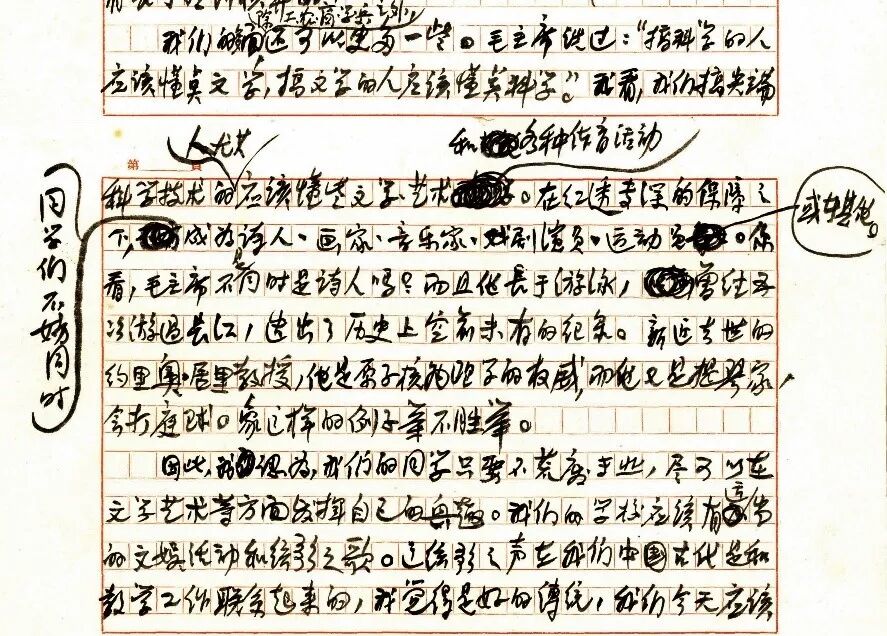 除工、农、商、学、兵之外，
我们的面还可以更多一些。毛主席说过：“搞科学的人
应该懂点文学，搞文学的人应该懂莫科学”。我看，我们搞尖端
第 頁
人尤其
和各种体育活动
科学技术的应该懂些文学、艺术。在红透专深的保障之
下，成为诗人、画家、音乐家、戏剧演员、运动员。你
或其他。
同学们不妨同时
看，毛主席不是同时是诗人吗？而且他长于游泳，曾经五
次游过长江，造出了历史上空前未有的纪录。新近去世的
约里奥·居里教授，他是原子核物理学的权威，而他又是提琴家，
会打庭球。象这样的例子举不胜举。
因此，我认为，我们的同学只要不荒废专业，尽可以在
文学艺术等方面发挥自己的兴趣。我们的学校应该有适当
的文娱活动和弦歌之歌。这弦歌之声在我们中国古代是和
教学工作联系起来的，我觉得是好的传统，我们今天应该